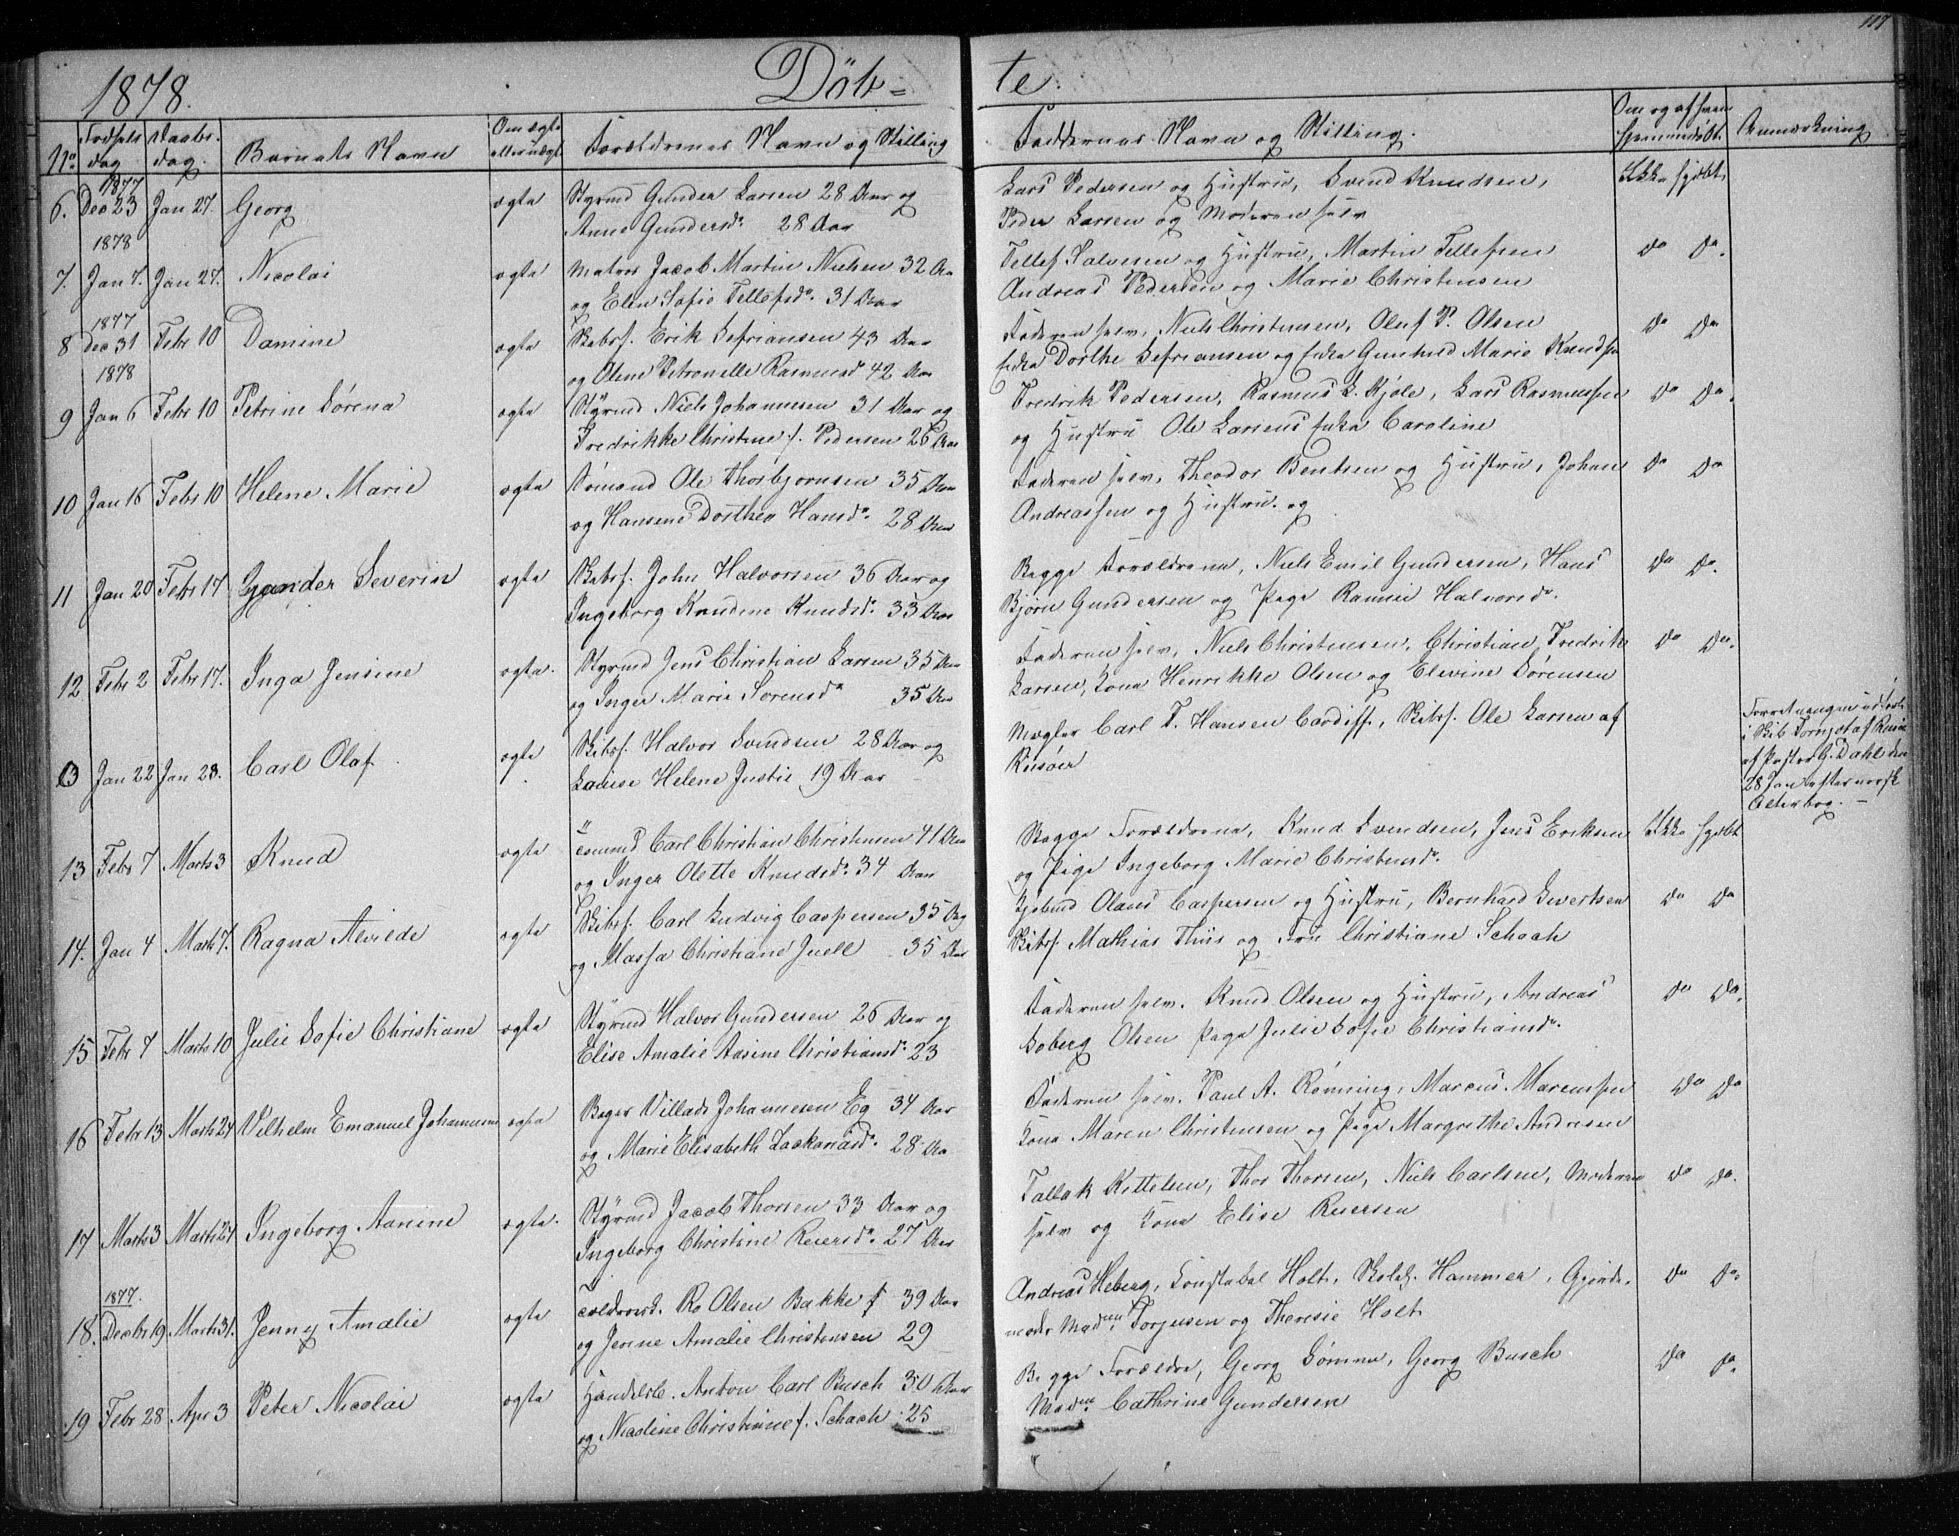 117
1878. Döb- te.
No Fødsels dag Daabs-dag. Barnets Navn Om ægte eller uægte Forældrenes Navn og Stilling Faddernes Navn og Stilling. Om og af hvem hjemmedøbt Anmærkning
1877
6. Dec 23 Jan 27. Georg ægte Styrmd Gunder Larsen 28 Aar og Lars Pedersen og Hustru, Svend Knudsen, Ikke hjdbt
Anne Gundersdr. 28 Aar Peder Larsen og Moderen selv
1878
7. Jan 7. Jan 27. Nicolai ægte Matros Jacob Martin Nielsen 32 Aa Tellef Salvesen og Hustru, Martin Tellefsen do do.
og Elen Sofie Tellefsdr. 31 Aar Andreas Pedersen og Marie Christensen
1877
8 Dec 31 Febr 10 Damine ægte Skibsf. Erik Zefriansen 43 Aar Faderen selv, Niels Christensen, Oluf P. Olsen do do
og Olene Petronelle Rasmusd 42 Aar Enke Dorthe Zefriansen og Enke Gunhild Marie Knudsen
1878
9 Jan 6 Febr 10 Petrine Sørena ægte Styrmd Niels Johannesen 31 Aar og Fredrik Pedersen, Rasmus L. Kjole, Lars Rasmussen do do.
Fredrikke Christine f. Pedersen 26 Aar og Hustru Ole Larsens Enke Caroline
10 Jan 16 Febr 10 Helene Marie ægte Sømand Ole Thorbjørnsen 35 Aar Faderen selv, Theodor Bentsen og Hustru, Johan do do
og Hansine Dorthea Hansdr. 28 Aar Andreassen og Hustru. og
11 Jan 20 Febr 17 Gunder Severin ægte Skibsf. John Halvorsen 36 Aar og Begge Forældrene, Niels Emil Gundersen, Hans do do.
Ingeborg Knudine Knudsdr. 33 Aar Bjørn Gundersen og Pige Ranni Halvorsdr.
12 Febr 2 Febr 17. Inga Jensine ægte. Styrmd Jens Christian Larsen 35 Aar Faderen selv, Niels Christensen, Christian Fredrik do do.
og Inger Marie Sørensdr 35 Aar Larsen, Kone Henrikke Olsen og Elevine Sørensen
13 Jan 22 Jan 28. Carl Olaf. ægte Skibsf. Halvor Svendsen 28 Aar og Mægler Carl T. Hansen Cardiff., Skibsf. Ole Larsen af Forretningen udført
Louise Helene Justie 19 Aar Risøer i Skib Fornjot af Risør
af Pastor G. Dahl den
28 Jan efter norsk
Alterbog. -
13 Febr 7 Marts 3 Knud ægte Tømmd Carl Christian Christensen 41 Aar Begge Forældrene, Knud Svendsen, Jens Eriksen Ikke hjdbt
og Inger Olette Knudsdr. 34 Aar og Pige Ingeborg Marie Christensdr.
14. Jan 4 Marts 7. Ragna Alvilde ægte Skibsf. Carl Ludvig Caspersen 35 Aar Kjøbmd Olaus Caspersen og Hustru, Bernhard Evertsen do do
og Massa Christiane Juell 35 Aar Skibsf. Mathias Thiis og Fru Christiane Schach
15 Febr 4 Marts 10 Julie Sofie Christiane ægte Styrmd Halvor Gundersen 26 Aar og Faderen selv. Knud Olsen og Hustru, Andreas do do.
Elise Amalie Aasine Christiansdr. 23 Soberg Olsen Pige Julie Sofie Christiansdr.
16 Febr 13 Marts 24 Vilhelm Emanuel Johannesen ægte Bager Villads Johannesen Eg 34 Aar Faderen selv. Paul A. Rønning, Marcus Marcussen do do
og Marie Elisabeth Zackariasdr. 28 Aar Kone Maren Christensen og Pige Margrethe Andresen
17 Marts 3 Marts 24 Ingeborg Aanine ægte. Styrmd Jacob Thorsen 33 Aar og Tallak Kittelsen, Thor Thorsen, Niels Carlsen, Moderen do do.
Ingeborg Christine Reiersdr. 27 Aar selv og Kone Elise Reiersen
1877.
18. Decbr 19 Marts 31. Jenny Amalie ægte Ro Olsen Bakke 39 Aar Andreas Heberg, Konstabel Holt, Skolel. Hammer, Gjorde- do do.
og Jenne Amalie Christensen 29 moder Madme. Torjusen og Theresie Holt
19 Febr 28 Apr 3 Peter Nicolai ægte Handelsb. Anton Carl Busch 30 Aar Begge Forældre, Georg Sømme, Georg Busch do do.
og Nicoline Christiane f. Schach 25 Madme. Cathrine Gundersen